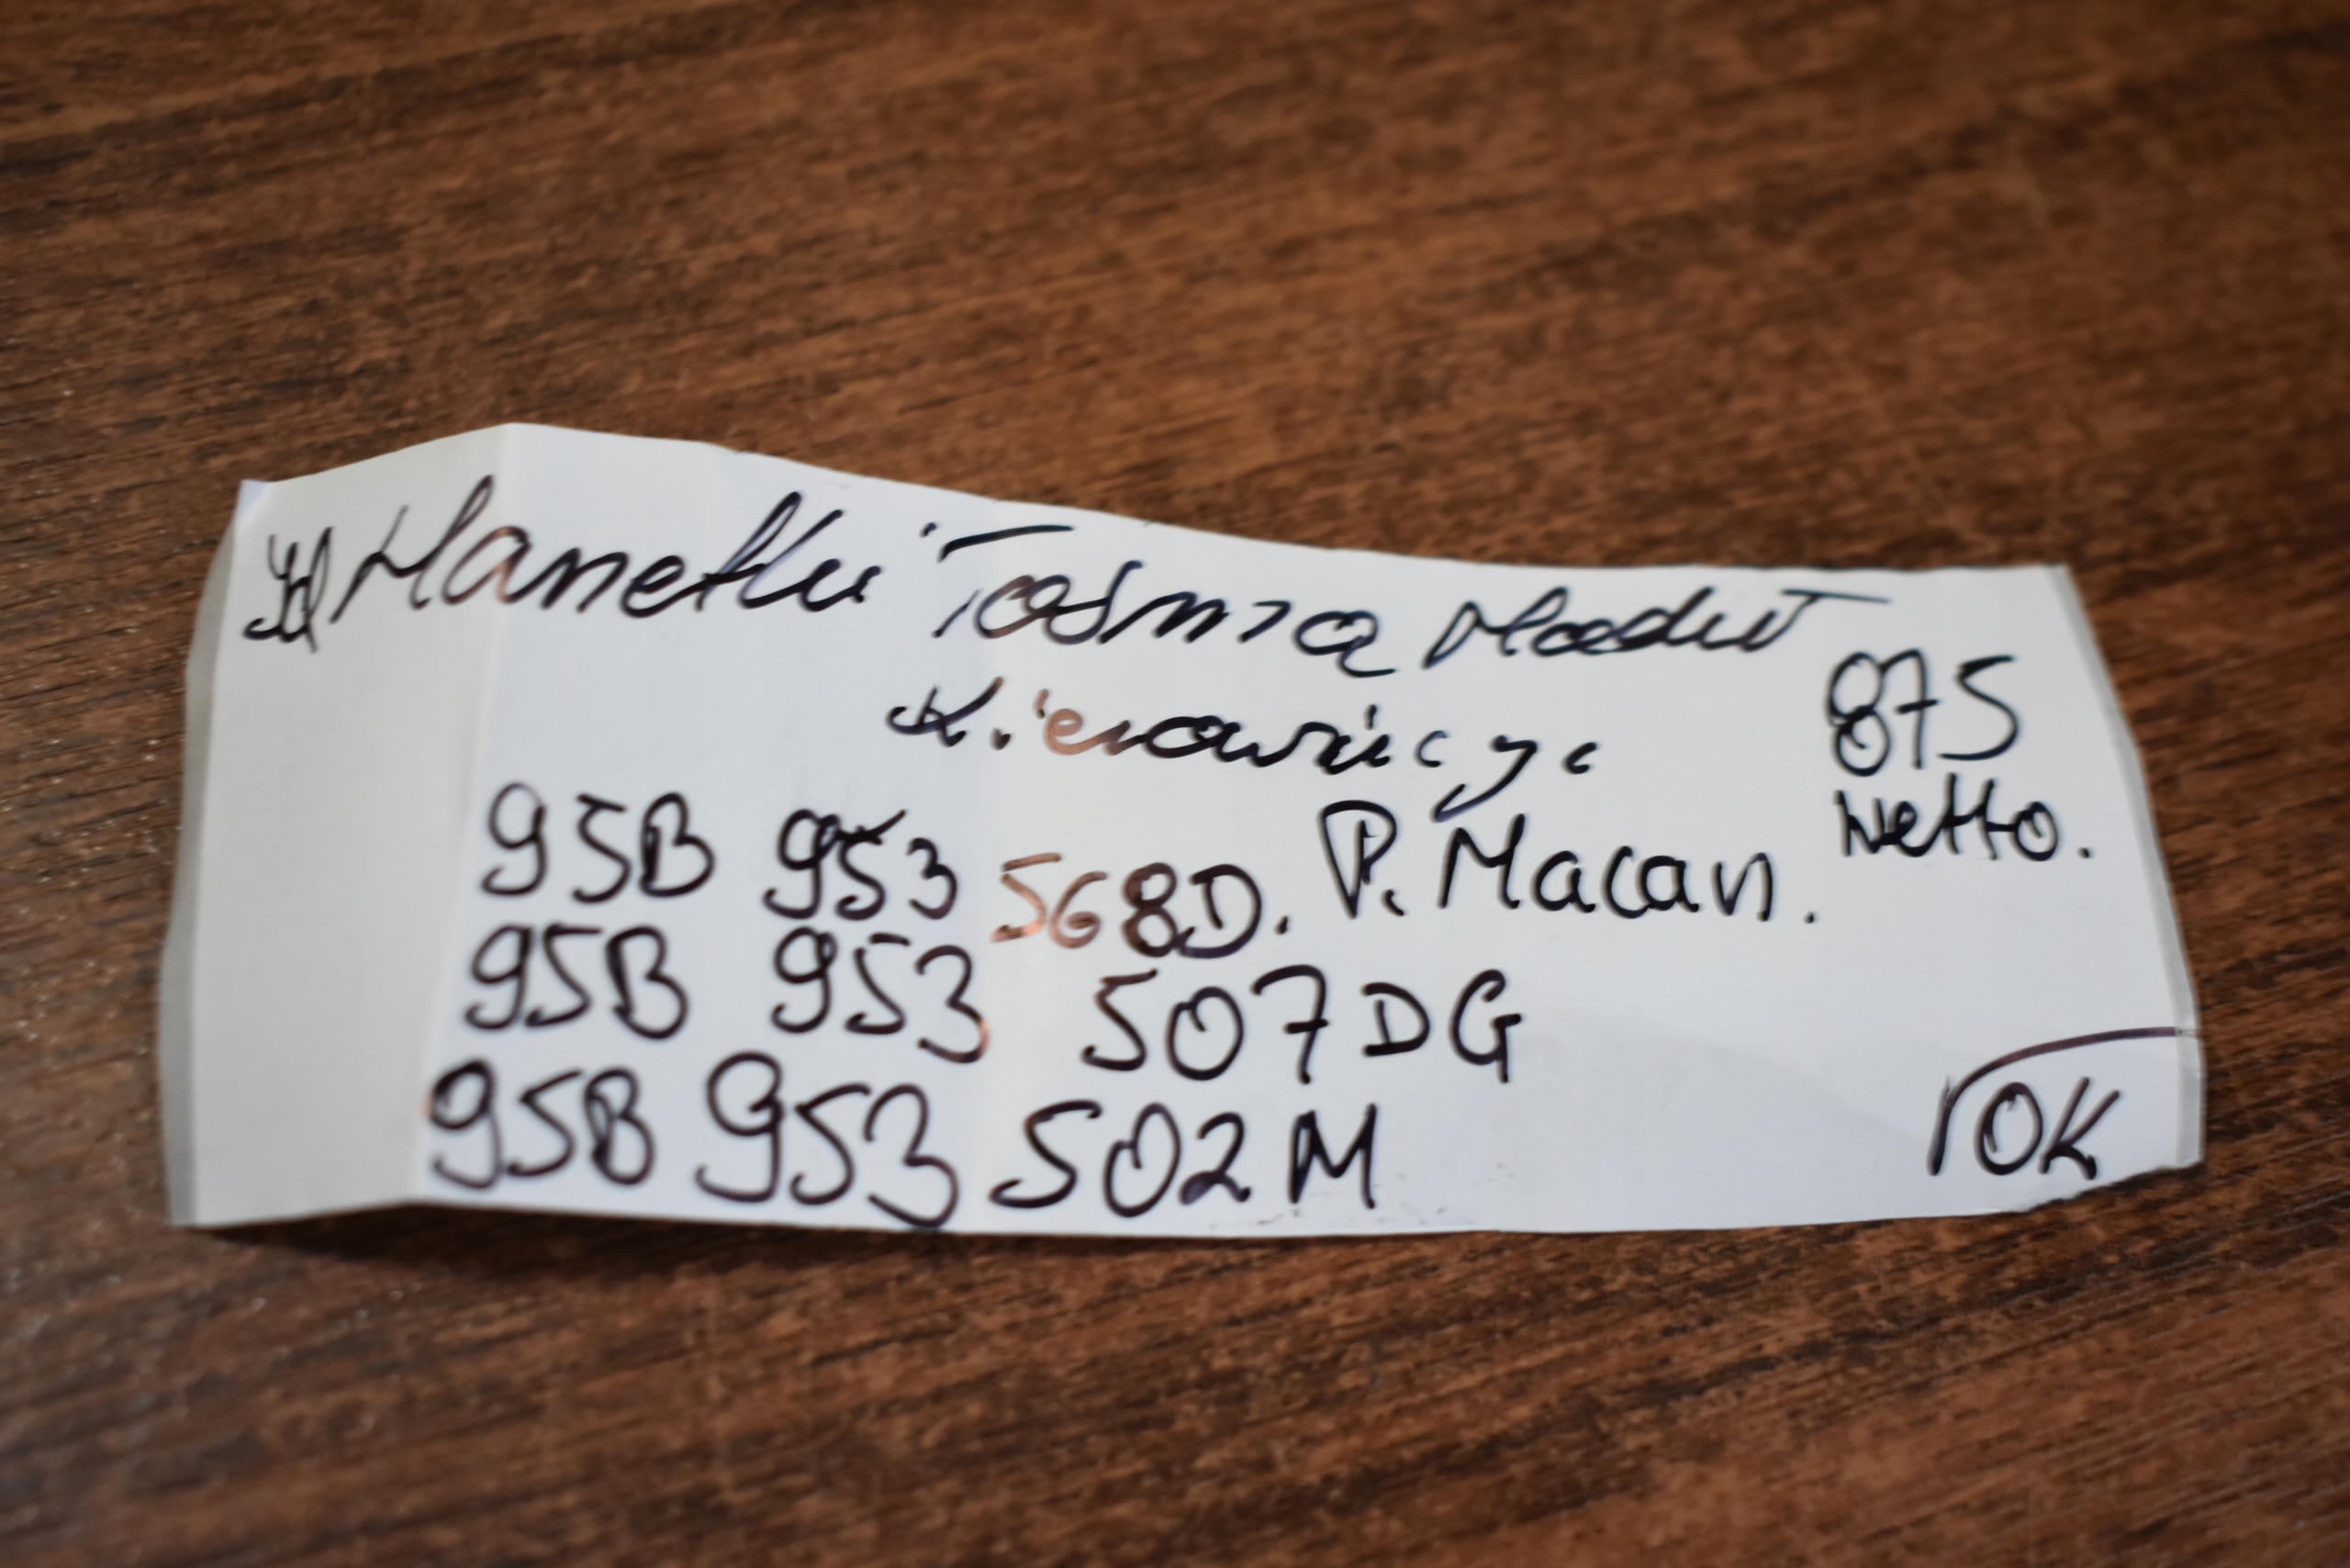 Manetki Taśma Moduł
Kierownicy
875
Netto.
95B 953 568D. P. Macan.
95B 953 507DG
95B 953 502M
OK